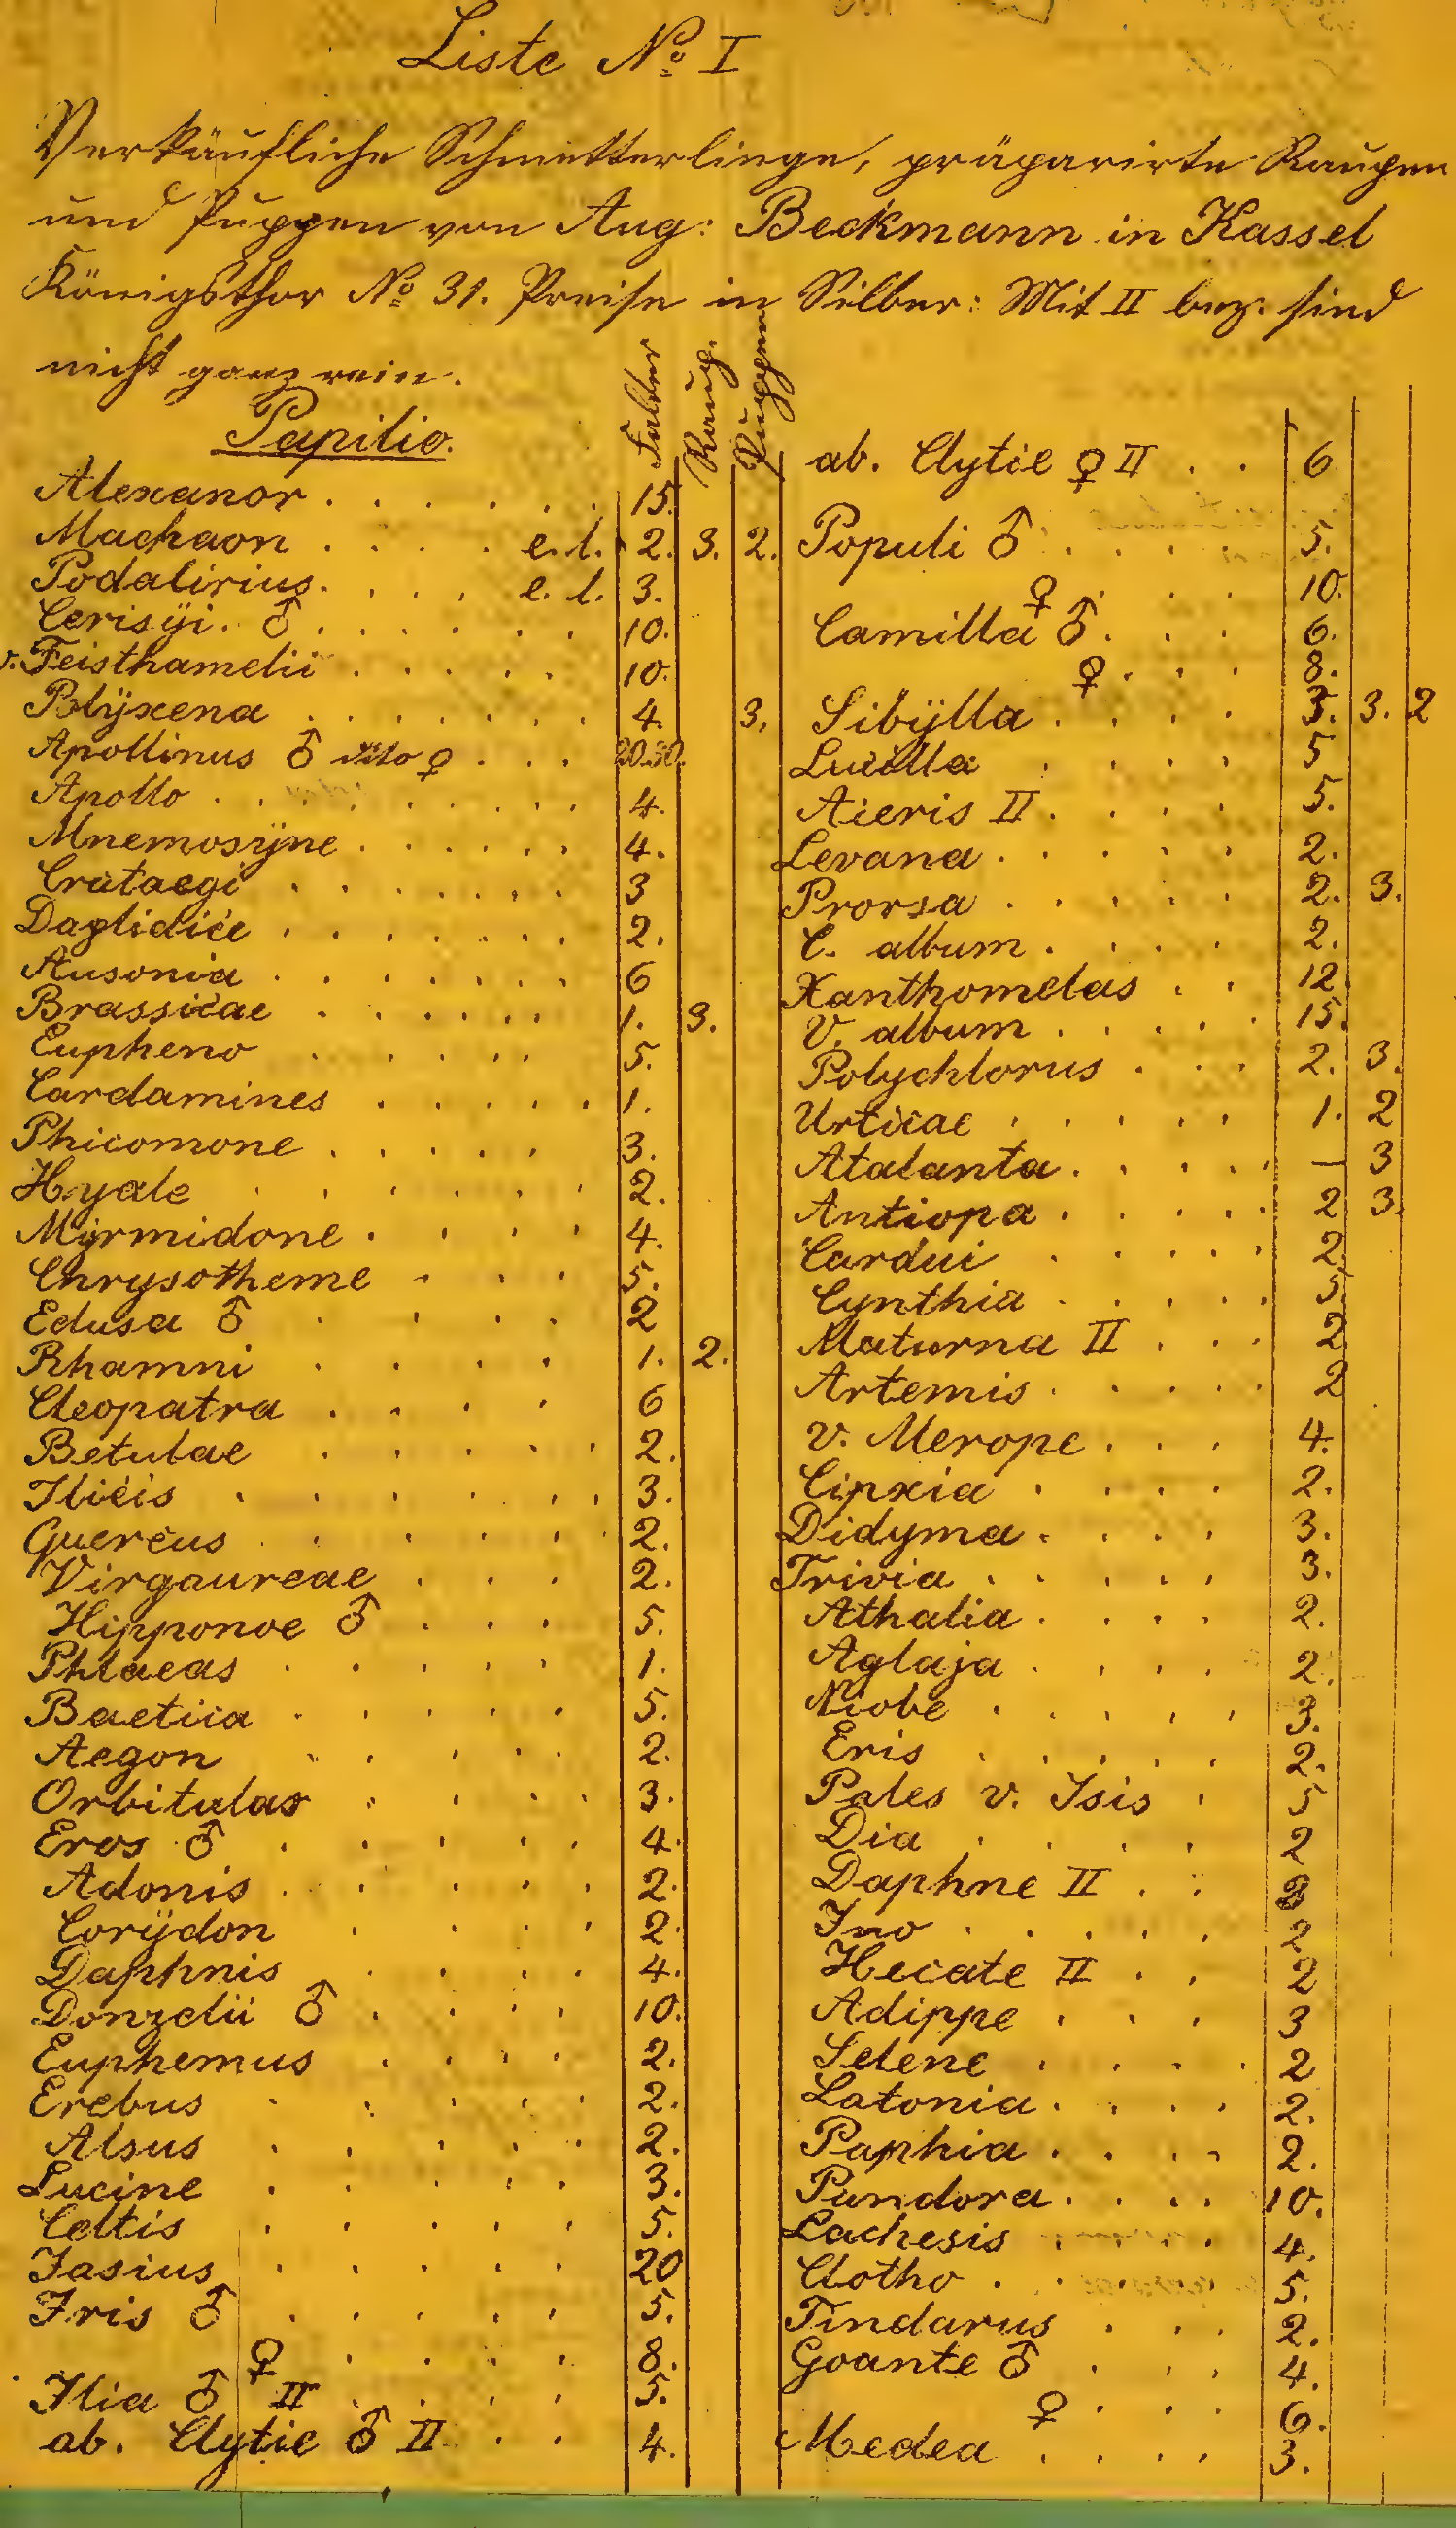 Liste No I
Verkäufliche Schmetterlinge, präparirte Raupen
und Puppen von Aug: Beckmann in Kassel
Königsthor No 31. Preise in Silber: Mit II bez. sind
nicht ganz rein.
Falter Raup. Puppen
Papilio.
Alexanor . . . . . . 15.
Machaon . . . . e.l. 2. 3. 2.
Podalirius . . . . e. l. 3.
Cerisÿi. ♂ . . . . . . 10.
v. Feisthamelii . . . . . 10.
Polÿxena . . . . . . . 4. 3.
Apollinus ♂ dito ♀ . . . 20.30.
Apollo . . . . . . . . 4.
Mnemosÿne . . . . . . 4.
Crataegi . . . . . . . 3
Daplidice . . . . . . . 2.
Ausonia . . . . . . . 6
Brassicae . . . . . . 1. 3.
Eupheno . . . . . 5.
Cardamines . . . . . 1.
Phicomone . . . . . 3.
Hyale . . . . . 2.
Mÿrmidone . . . . 4.
Chrysotheme . . . 5.
Edusa ♂ . . . . 2
Rhamni . . . . 1. 2.
Cleopatra . . . . 6
Betulae . . . . . 2.
Ilicis . . . . . . 3.
Quercus . . . . . 2.
Virgaureae . . . 2.
Hipponoe ♂ . . . 5.
Phlaeas . . . . . 1.
Baetica . . . . . 5.
Aegon . . . . . 2.
Orbitulas . . . . 3.
Eros ♂ . . . . . 4.
Adonis . . . . . 2.
Corÿdon . . . . 2.
Daphnis . . . . 4.
Donzelii ♂ . . . . 10.
Euphemus . . . . 2.
Erebus . . . . . 2.
Alsus . . . . . 2.
Lucine . . . . . 3.
Celtis . . . . . 5.
Jasius . . . . . 20
Iris ♂ . . . . . 5.
♀ . . . . 8.
Ilia ♂ II . . . . 5.
ab. Clytie ♂ II . . 4.
ab. Clytie ♀ II . . 6
Populi ♂ . . . . 5.
♀ . . . 10.
Camilla ♂ . . . 6.
♀ . . . 8.
Sibÿlla . . . . 3. 3. 2
Lucilla . . . . 5
Aceris II . . . . 5.
Levana . . . . . 2.
Prorsa . . . . . 2. 3.
C. album . . . . 2.
Xanthomelas . . 12
V. album . . . . . 15.
Polychlorus . . . 2. 3.
Urticae . . . . . 1. 2
Atalanta . . . . . — 3
Antiopa . . . . . 2 3.
Cardui . . . . . 2.
Cynthia . . . . . 5.
Maturna II . . . 2
Artemis . . . . . 2
v. Merope . . . 4.
Cinxia . . . . 2.
Didyma . . . . 3.
Trivia . . . . . 3.
Athalia . . . . 2.
Aglaja . . . . 2.
Niobe . . . . . 3.
Eris . . . . . 2.
Pales v. Isis . 5
Dia . . . . 2
Daphne II . .
Ino . . . . . 2
Hecate II . . 2
Adippe . . . 3
Selene . . . . 2
Latonia . . . . 2.
Paphia . . . . 2.
Pandora . . . . 10.
Lachesis . . . . 4.
Clotho . . . . 5.
Tindarus . . . 2.
Goante ♂ . . . 4.
♀ . . . 6.
Medea . . . . 3.